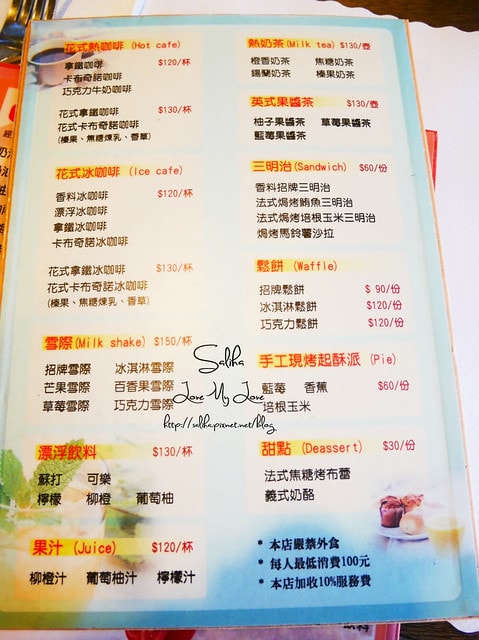 花式熱咖啡 (Hot cafe)
拿鐵咖啡 $120/杯
卡布奇諾咖啡
巧克力牛奶咖啡
花式拿鐵咖啡 $130/杯
花式卡布奇諾咖啡
(榛果、焦糖煉乳、香草)
花式冰咖啡 (Ice cafe)
香料冰咖啡 $120/杯
漂浮冰咖啡
拿鐵冰咖啡
卡布奇諾冰咖啡
花式拿鐵冰咖啡 $130/杯
花式卡布奇諾冰咖啡
(榛果、焦糖煉乳、香草)
雪際(Milk shake) $150/杯
招牌雪際 冰淇淋雪際
芒果雪際 百香果雪際
草莓雪際 巧克力雪際
漂浮飲料 $130/杯
蘇打 可樂
檸檬 柳橙 葡萄柚
果汁 (Juice) $120/杯
柳橙汁 葡萄柚汁 檸檬汁
熱奶茶(Milk tea) $130/壺
橙香奶茶 焦糖奶茶
錫蘭奶茶 榛果奶茶
英式果醬茶 $130/壺
柚子果醬茶 草莓果醬茶
藍莓果醬茶
三明治(Sandwich) $60/份
香料招牌三明治
法式焗烤鮪魚三明治
法式焗烤培根玉米三明治
焗烤馬鈴薯沙拉
鬆餅 (Waffle)
招牌鬆餅 $ 90/份
冰淇淋鬆餅 $120/份
巧克力鬆餅 $120/份
手工現烤起酥派 (Pie)
藍莓 香蕉 $60/份
培根玉米
甜點 (Deassert) $30/份
法式焦糖烤布蕾
義式奶酪
* 本店嚴禁外食
* 每人最低消費100元
* 本店加收10%服務費
Saliha
Love My Love
http://saliha.pixnet.net/blog